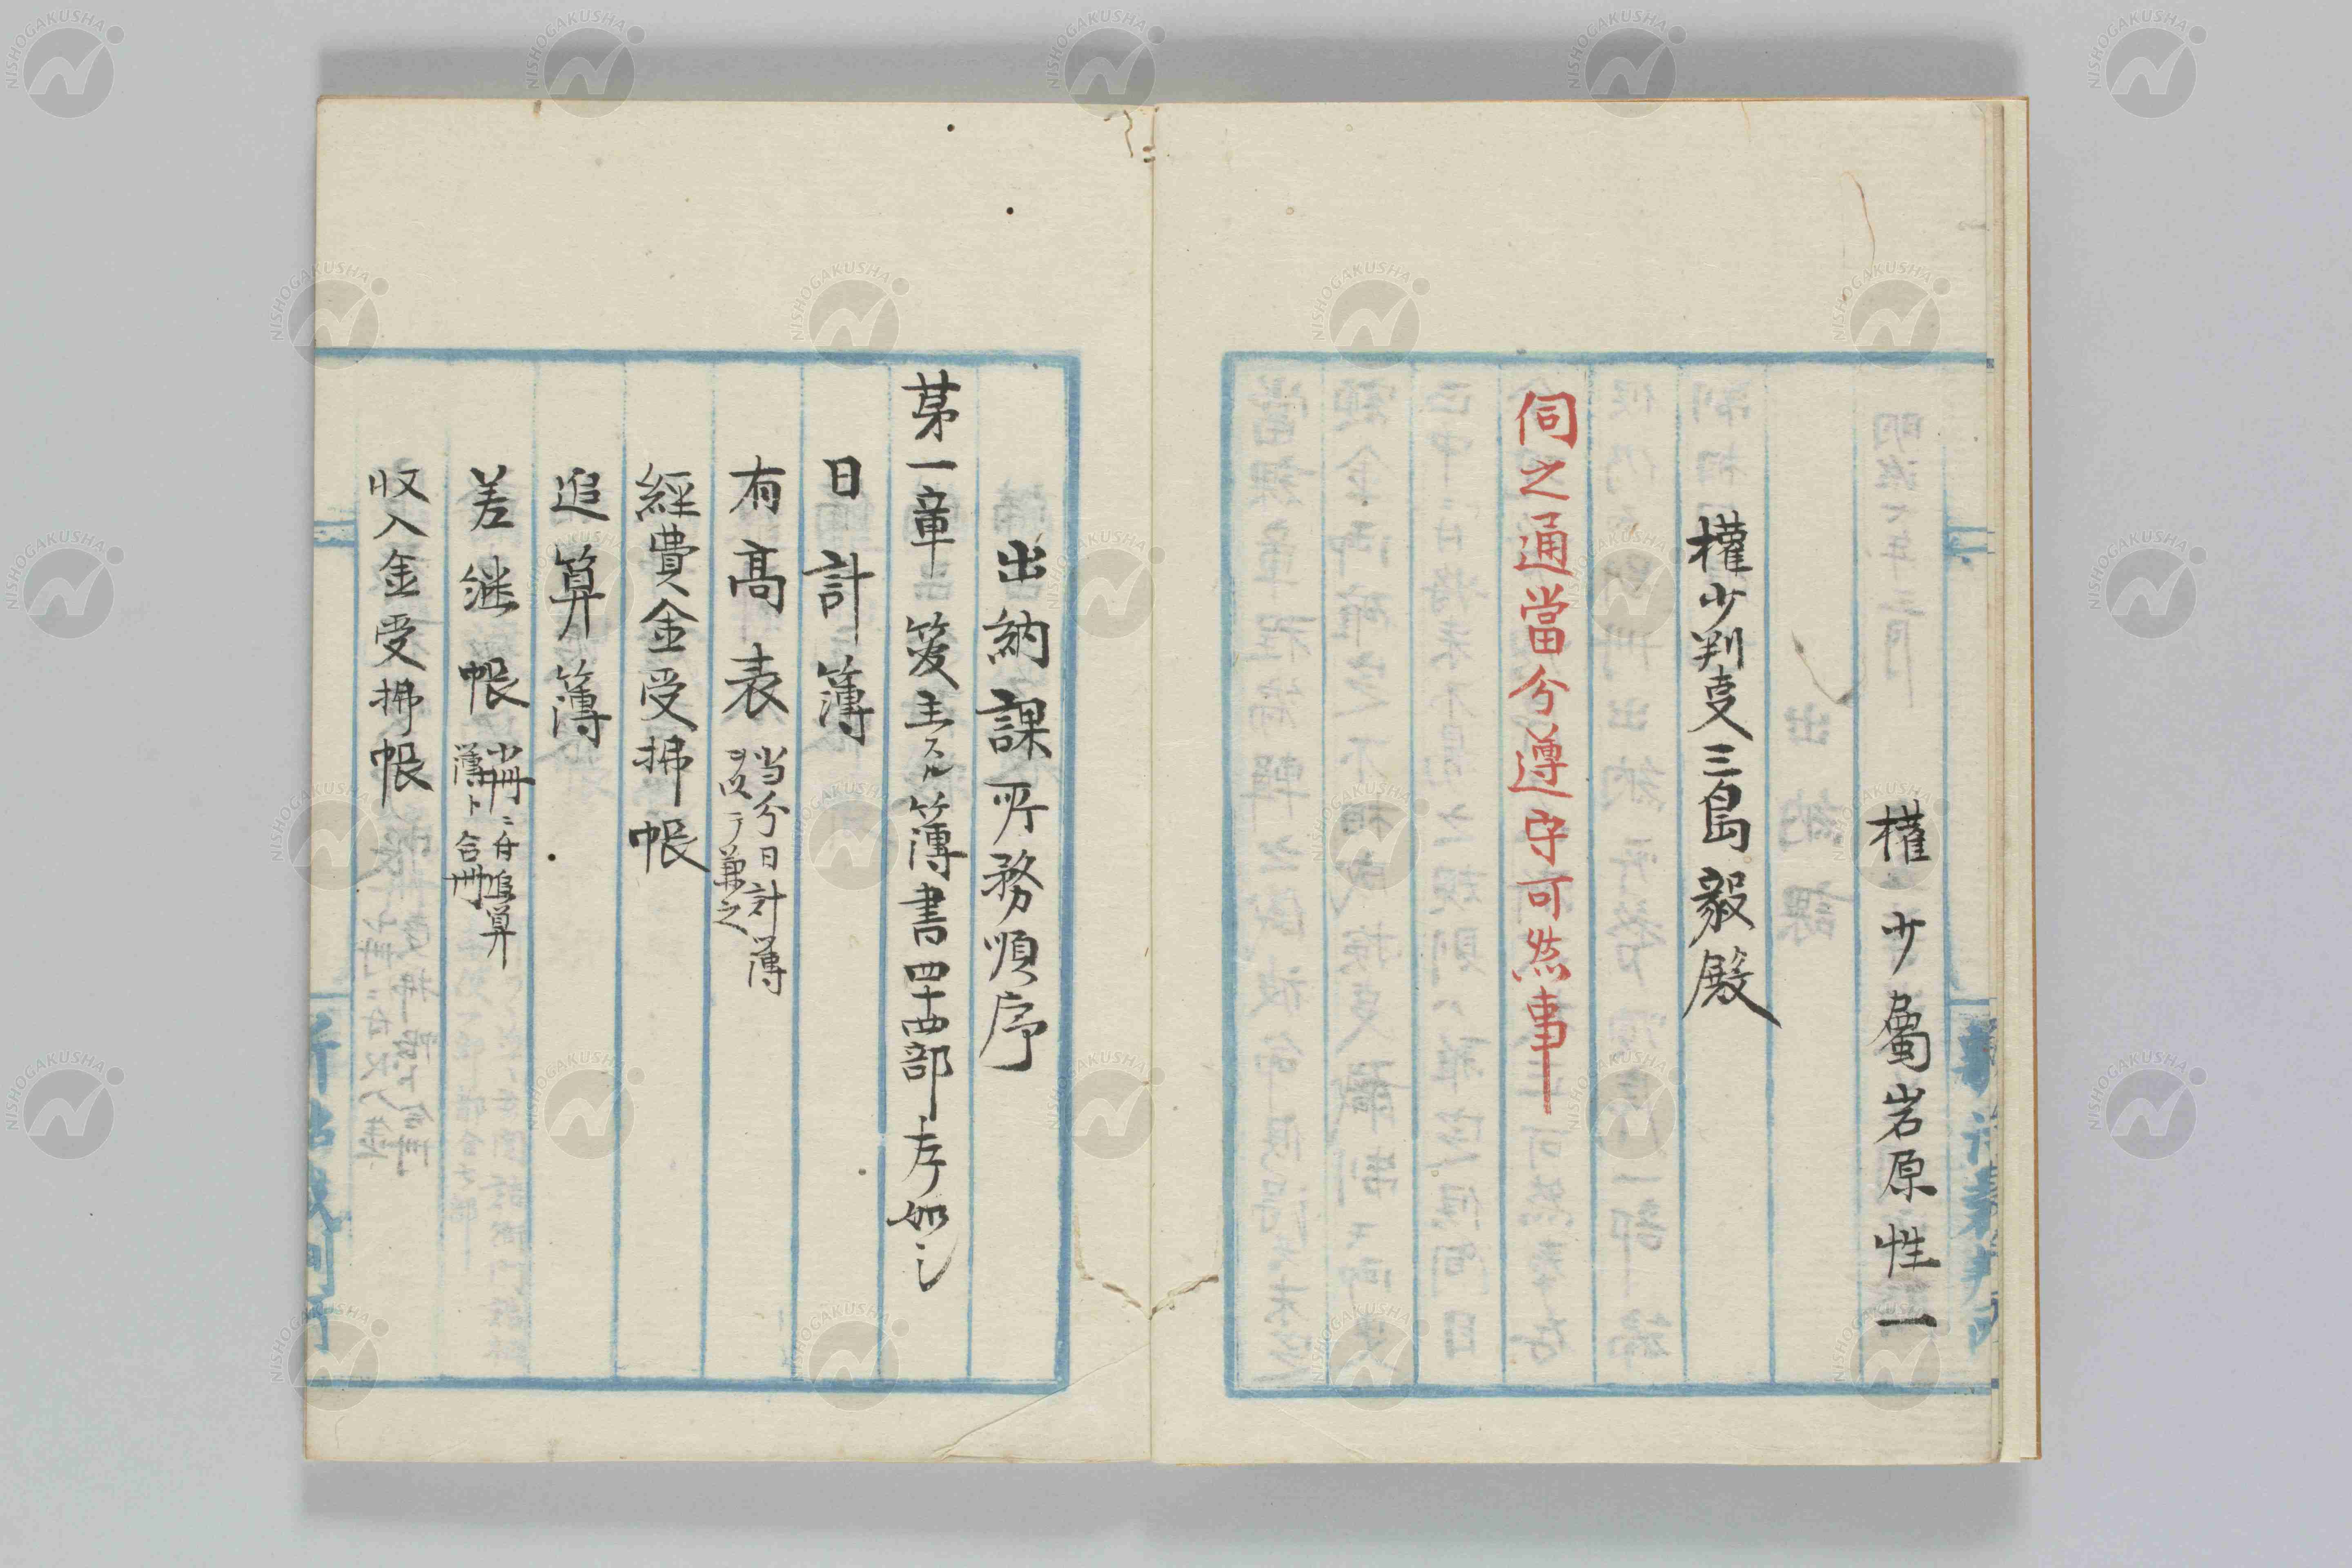 權少屬岩原性一
權少判事三島毅殿
伺之通當分遵守可然事
出納課所務順序
第一章 管主スル簿書四十四部左如シ
日計簿
有高表 当分日計簿
ヲ以テ兼之
經費金受拂帳
追算簿
差継帳 小冊ニ付追算
簿ト合冊
收入金受拂帳